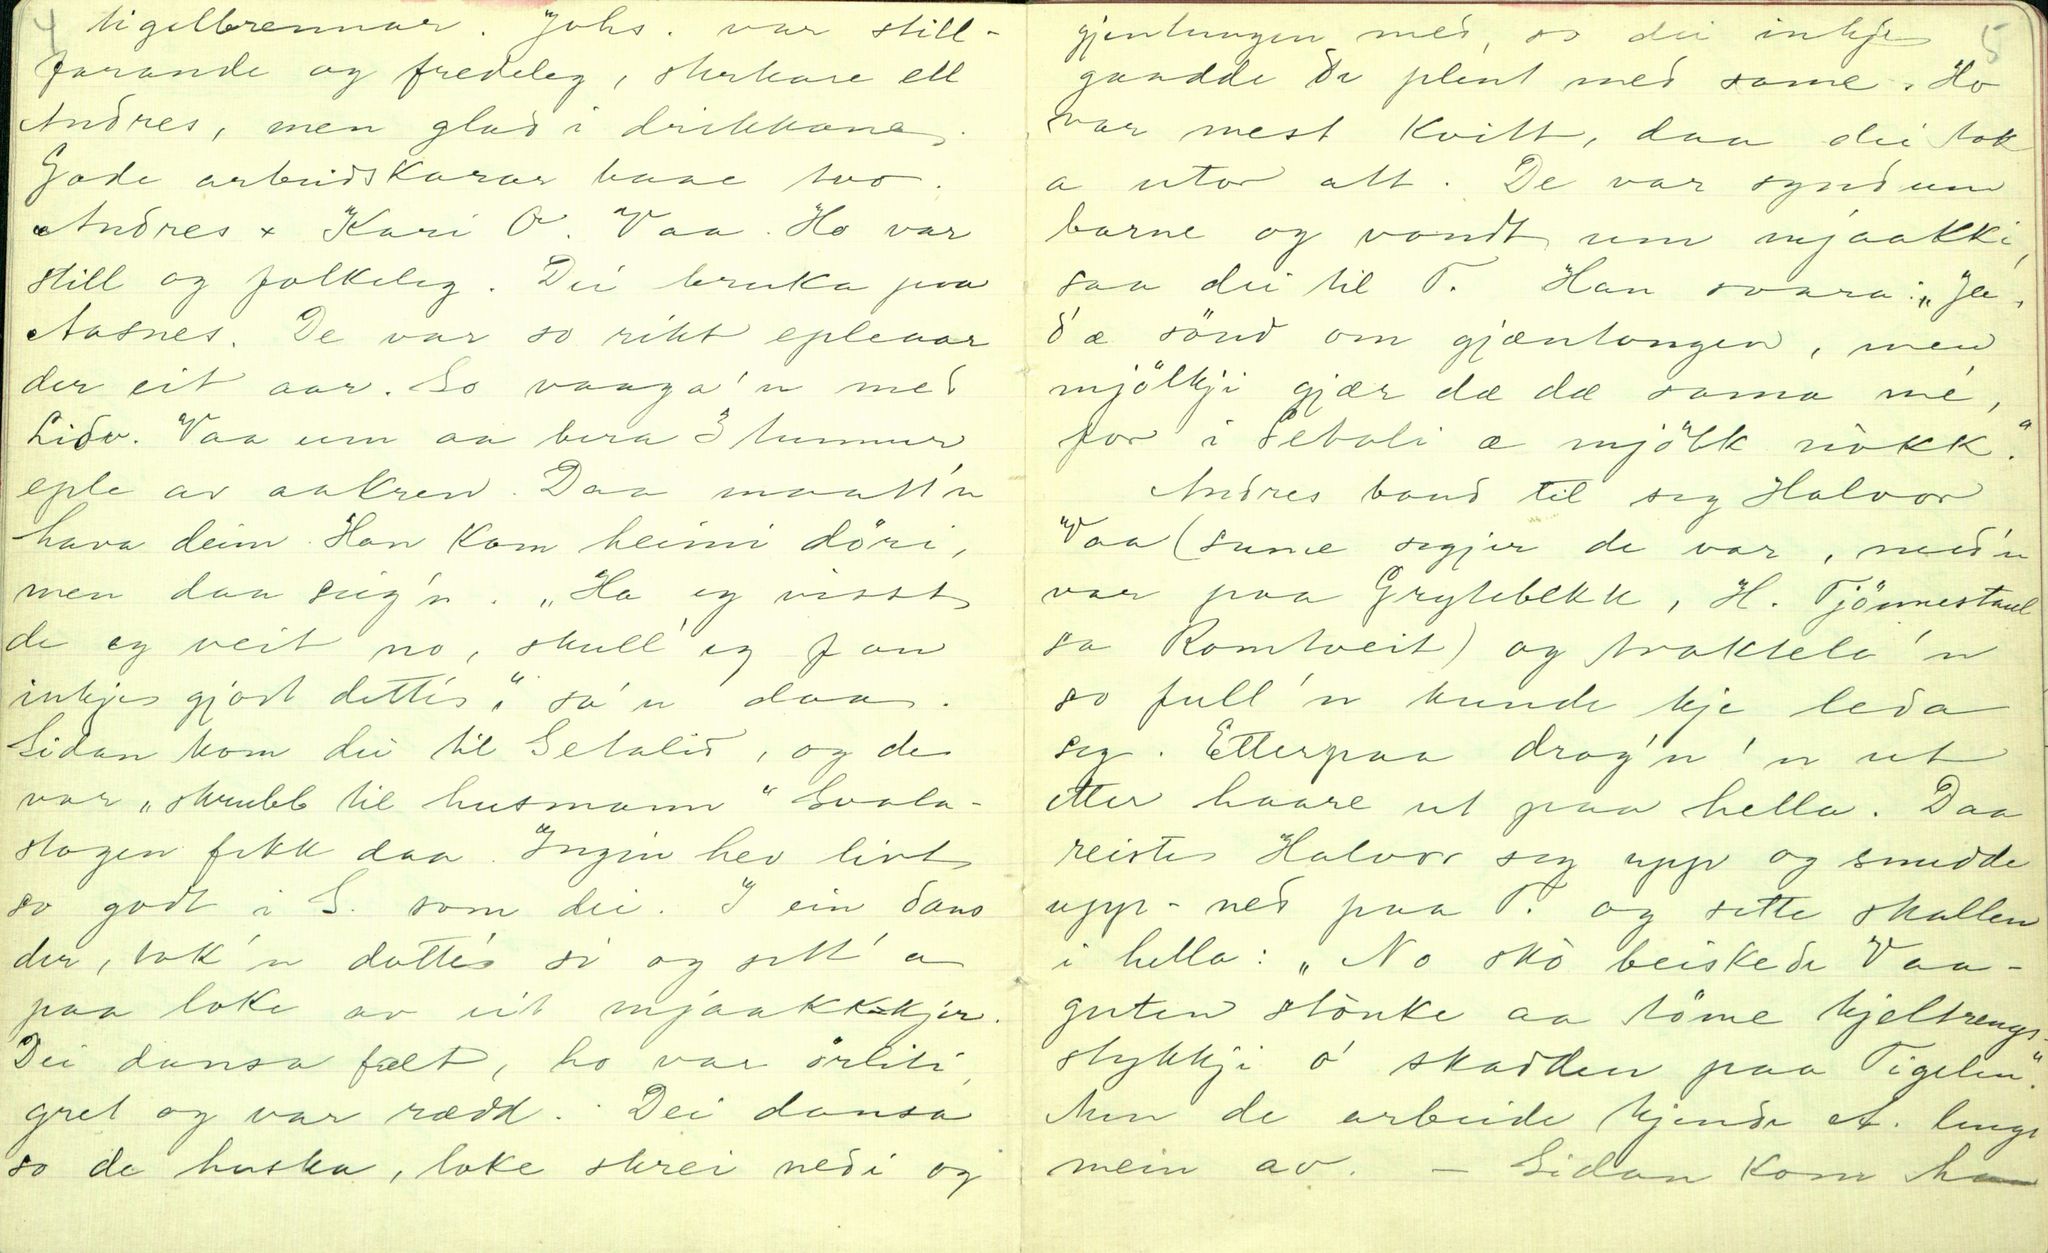 4
tigelbrennar. Johs. var still-
farande og fredeleg, sterkare ell
Andres, men glad i drikkane.
Gode arbeidskarar baae two.
Andres x Kari O. Vaa. Ho var
still og folkeleg. Dei bruka paa
Aasnes. De var so rikt epleaar
der eit aar. So vaaga'n med
Lidv. Vaa um aa bera 3 tunnur
eple av aakren. Daa maatt'n
hava deim. Han kom heimi döri,
men daa seig'n. „Ha eg visst
de eg veit no, skull' eg fan
inkje gjort dettè," sa'n daa.
Sidan kom dei til Setalid, og de
var „skrubb til husmann" Svala-
stogen fekk daa. Ingin hev livt
so godt i S. som dei. I ein dans
der, tok'n dottè si og sett' a
paa loke av eit mjaakkkjer.
Dei dansa fælt, ho var örliti,
gret og var rædd. Dei dansa
so de huska, loke skrei nedi og
5
gjentungen med, so dei inkje
gaadde de plent med same. Ho
var mest kvitt, daa dei tok
a utor att. De var synd um
barne og vondt um mjaakki,
saa dei til T. Han svara: „Ja,
d'æ sönd om gjæntongen, men
mjölkji gjær dæ dæ sama me,
for i Setali æ mjölk nòkk."
Andres baud til seg Halvor
Vaa (sume segjer de var, med'n
var paa Grytebekk, H. Tjönnestaul
sa Romtveit) og traktela'n
so full'n kunde kje leda
seg. Etterpaa drog'n'n ut
etter haare ut paa hella. Daa
reiste Halvor seg upp og snudde
upp-ned paa T. og sette skallen
i hella: „No skò beiskede Vaa-
guten stònke aa töme kjeltrengs-
stykkji ó skadden paa Tigelen."
Men de arbeide kjende A. lenge
mein av. — Sidan kom